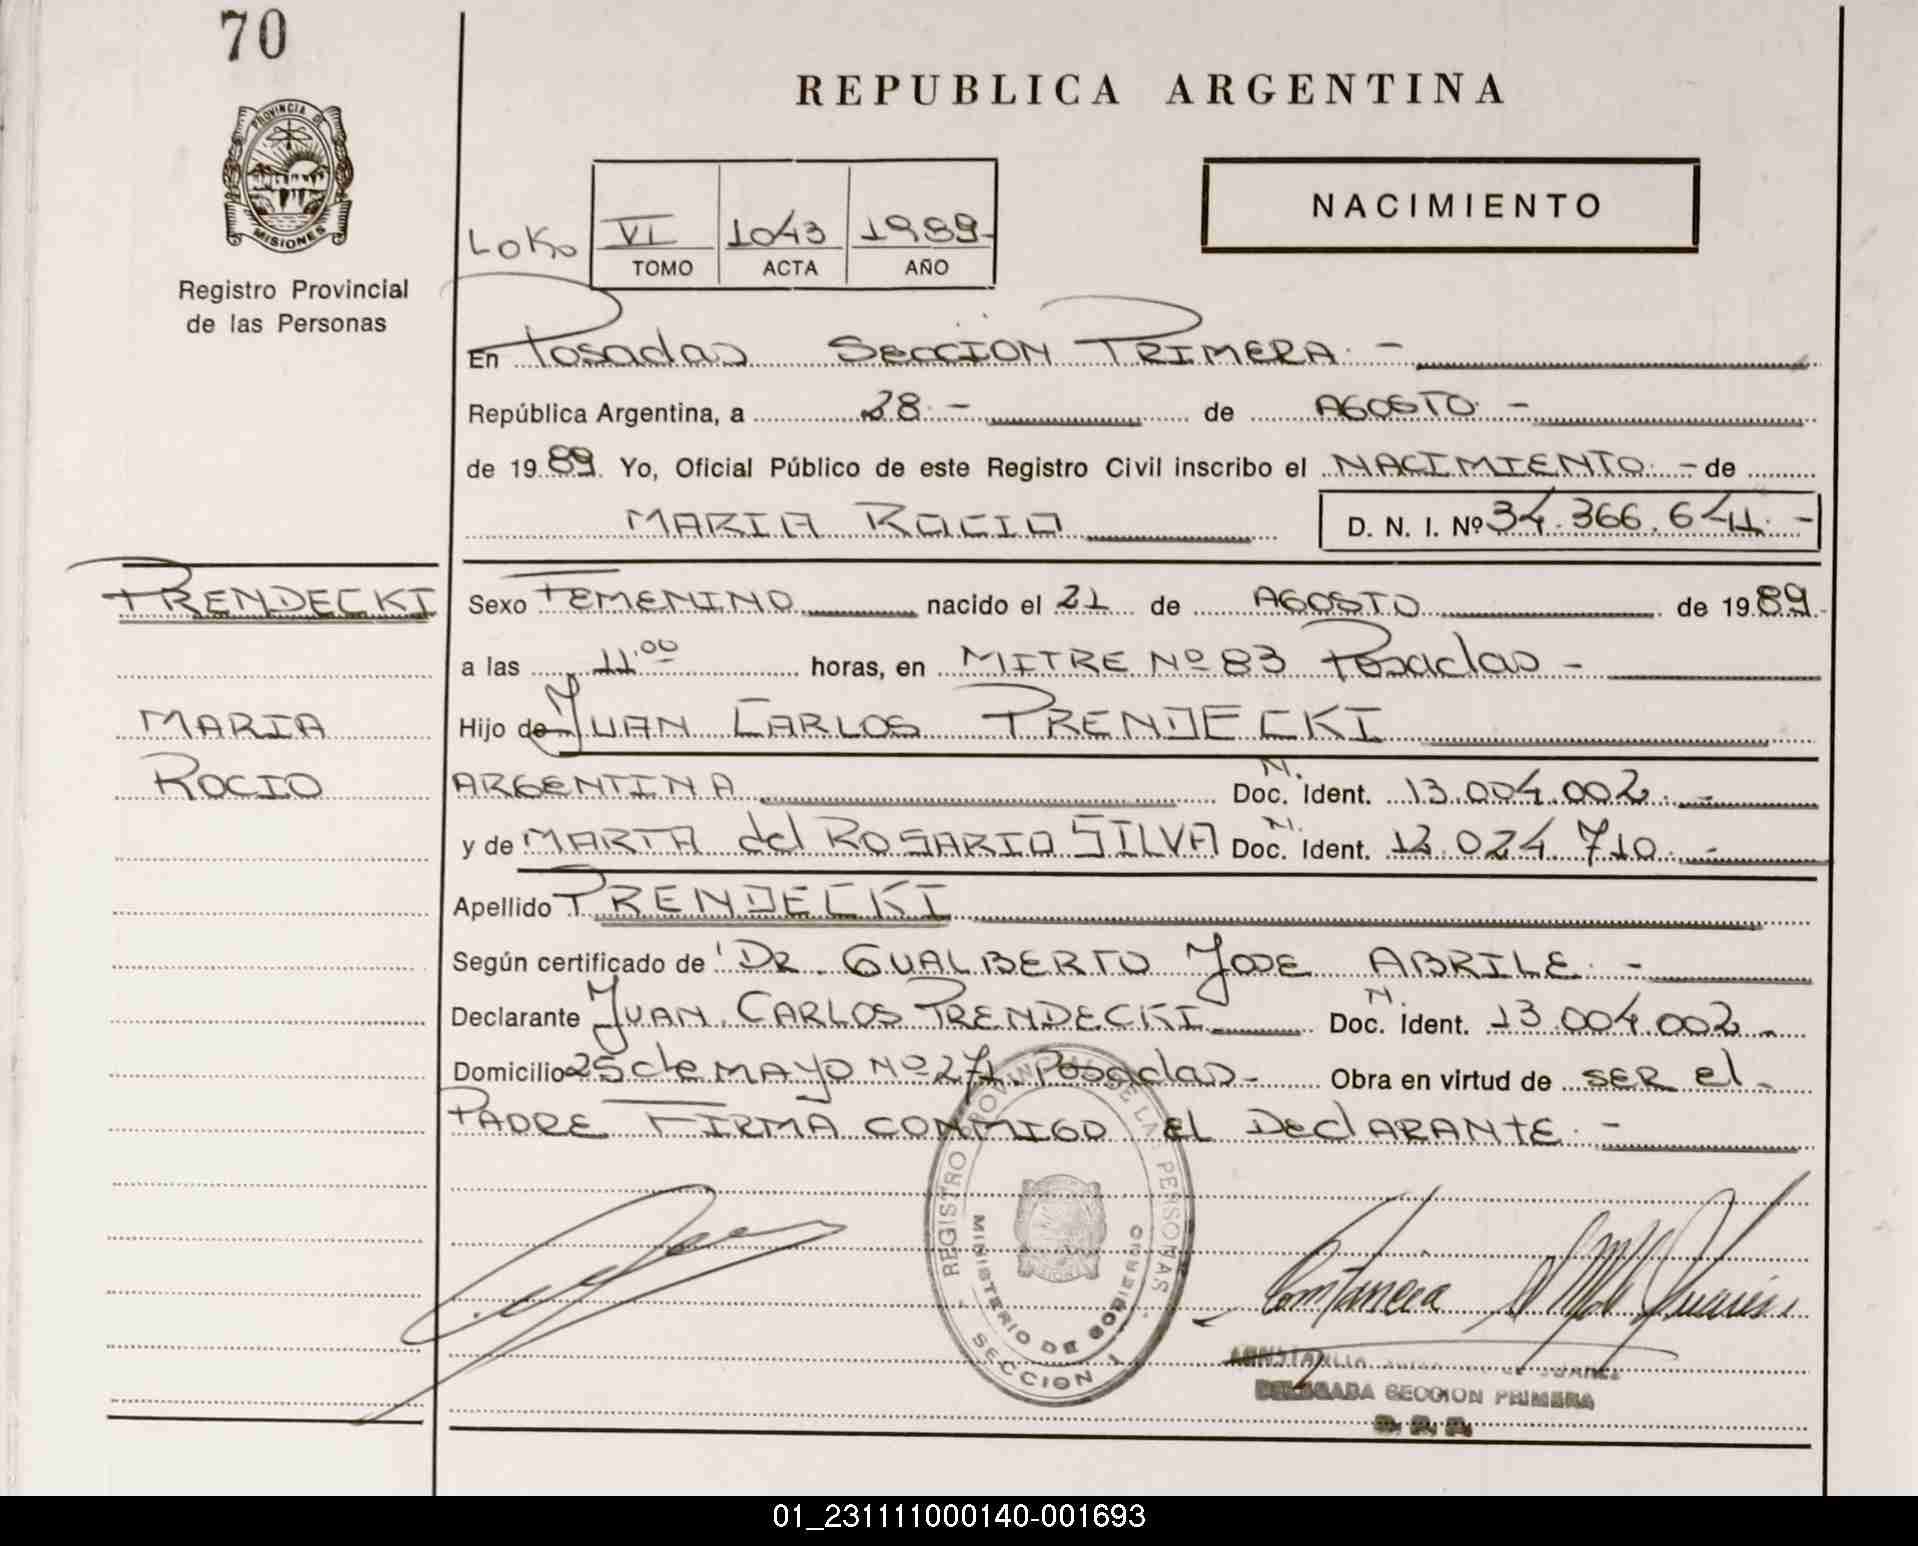 70
REPUBLICA ARGENTINA
PROVINCIA DE
MISIONES
Registro Provincial
de las Personas
NACIMIENTO
VI 1043 1989-
TOMO ACTA AÑO
En Posadas SECCION PRIMERA. -
República Argentina, a 28. - de AGOSTO. -
de 19 89. Yo, Oficial Público de este Registro Civil inscribo el NACIMIENTO. - de
MARIA ROCIO D. N. I. Nº 34.366.641. -
PRENDECKI
MARIA
ROCIO
Sexo FEMENINO nacido el 21 de AGOSTO de 19 89.
a las 11.00 horas, en MITRE Nº 83 Posadas -
Hijo de JUAN CARLOS PRENDECKI
ARGENTINA N. Doc. Ident. 13.004.002. -
y de MARTA del ROSARIO SILVA N. Doc. Ident. 12.024.710. -
Apellido PRENDECKI
Según certificado de DR. GUALBERTO JOSE ABRILE. -
Declarante JUAN CARLOS PRENDECKI N. Doc. Ident. 13.004.002 -
Domicilio 25 de MAYO Nº 271. Posadas - Obra en virtud de SER El -
PADRE FIRMA CONMIGO El DEClARANTE. -
REGISTRO PROVINCIAL DE LAS PERSONAS
MINISTERIO DE GOBIERNO
SECCION 1
Constancia
DELEGADA SECCION PRIMERA
01_231111000140-001693